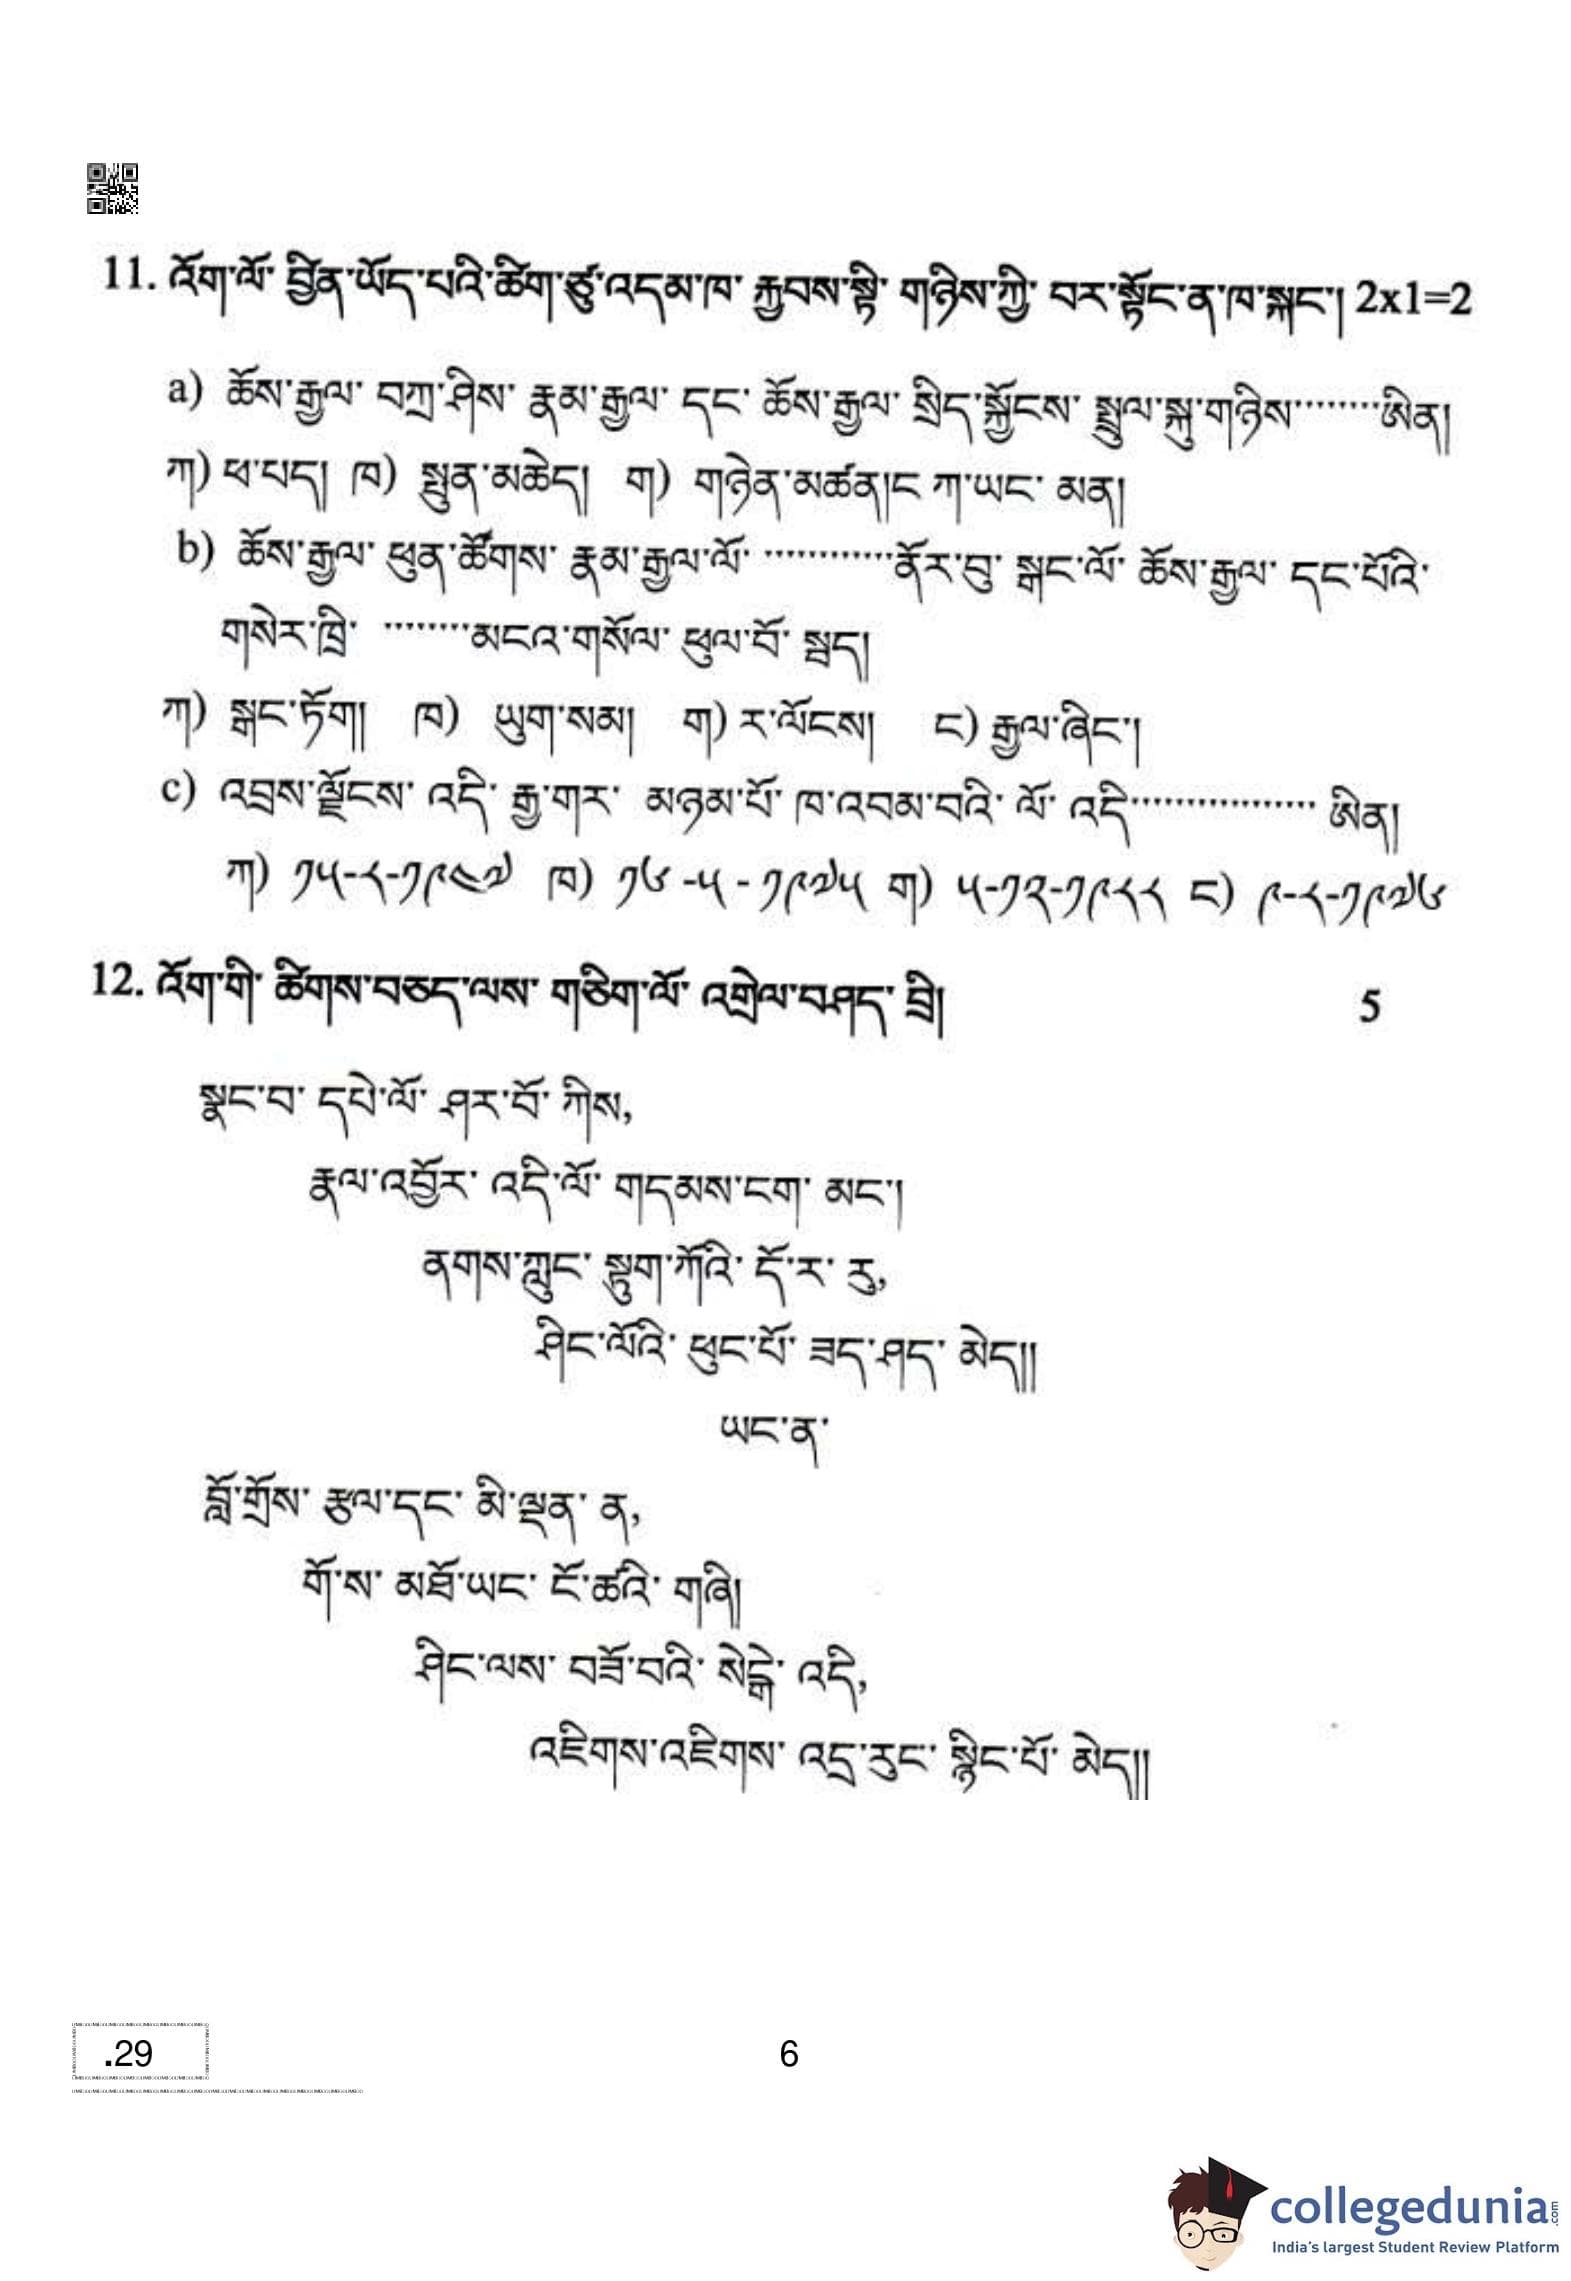 11. འོག་ལོ་ བྱིན་ཡོད་པའི་ཚིག་ཙུ་འདམ་ཁ་ རྐྱབས་སྟི་ གཉིས་ཀྱི་ བར་སྟོང་ན་ཁ་སྐང་། 2x1=2
a) ཆོས་རྒྱལ་ བཀྲ་ཤིས་ རྣམ་རྒྱལ་ དང་ ཆོས་རྒྱལ་ སྲིད་སྐྱོངས་ སྤྲུལ་སྐུ་གཉིས་........ཨིན།
ཀ) ཕ་པད། ཁ) སྤུན་མཆེད། ག) གཉེན་མཚན།ང ཀ་ཡང་ མན།
b) ཆོས་རྒྱལ་ ཕུན་ཚོགས་ རྣམ་རྒྱལ་ལོ་ ............ནོར་བུ་ སྒང་ལོ་ ཆོས་རྒྱལ་ དང་པོའི་
གསེར་ཁྲི་ ........མངའ་གསོལ་ ཕུལ་བོ་ སྦད།
ཀ) སྒང་ཏོག། ཁ) ཡུག་སམ། ག) ར་ལོངས། ང) རྒྱལ་ཞིང་།
c) འབྲས་ལྗོངས་ འདི་ རྒྱ་གར་ མཉམ་པོ་ ཁ་འབམ་བའི་ ལོ་ འདི................ ཨིན།
ཀ) ༡༥-༨-༡༩༤༧ ཁ) ༡༦ -༥ - ༡༩༧༥ ག) ༥-༡༢-༡༩༨༨ ང) ༩-༨-༡༩༧༦
12. འོག་གི་ ཚིགས་བཅད་ལས་ གཅིག་ལོ་ འགྲེལ་བཤད་ བྲི། 5
སྣང་བ་ དཔེ་ལོ་ ཤར་བོ་ ཀིས,
རྣལ་འབྱོར་ འདི་ལོ་ གདམས་ངག་ མང་།
ནགས་ཀླུང་ སྟུག་ཀོའི་ དོ་ར་ རུ,
ཤིང་ལོའི་ ཕུང་པོ་ ཟད་ཤད་ མེད།།
ཡང་ན་
བློ་གྲོས་ རྩལ་དང་ མི་ལྡན་ ན,
གོ་ས་ མཐོ་ཡང་ ངོ་ཚའི་ གཞི།
ཤིང་ལས་ བཟོ་བའི་ སེངྒེ་ འདི,
འཇིགས་འཇིགས་ འདྲ་རུང་ སྙིང་པོ་ མེད།།
.29
6
collegedunia.com
India's largest Student Review Platform